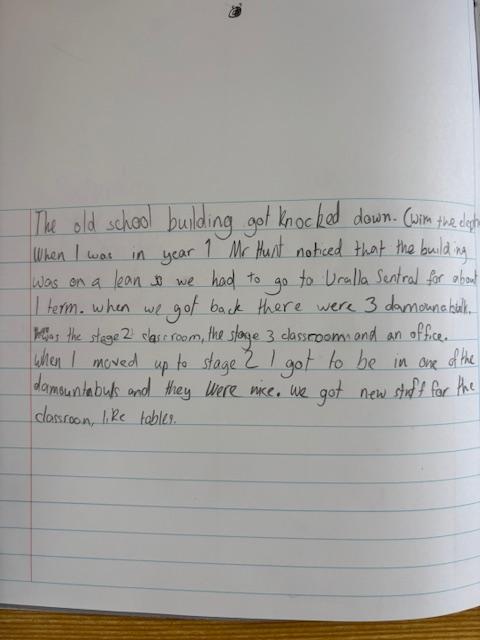 The old school building got knocked down. (with the
When I was in year 1 Mr Hunt noticed that the building
was on a lean so we had to go to Uralla Sentral for about
1 term. when we got back there were 3
was the stage 2 classroom, the stage 3 classroom and an office.
When I moved up to stage 2 I got to be in one of the
damountabuls and they were nice. we got new stuff for the
classroon, like tables.